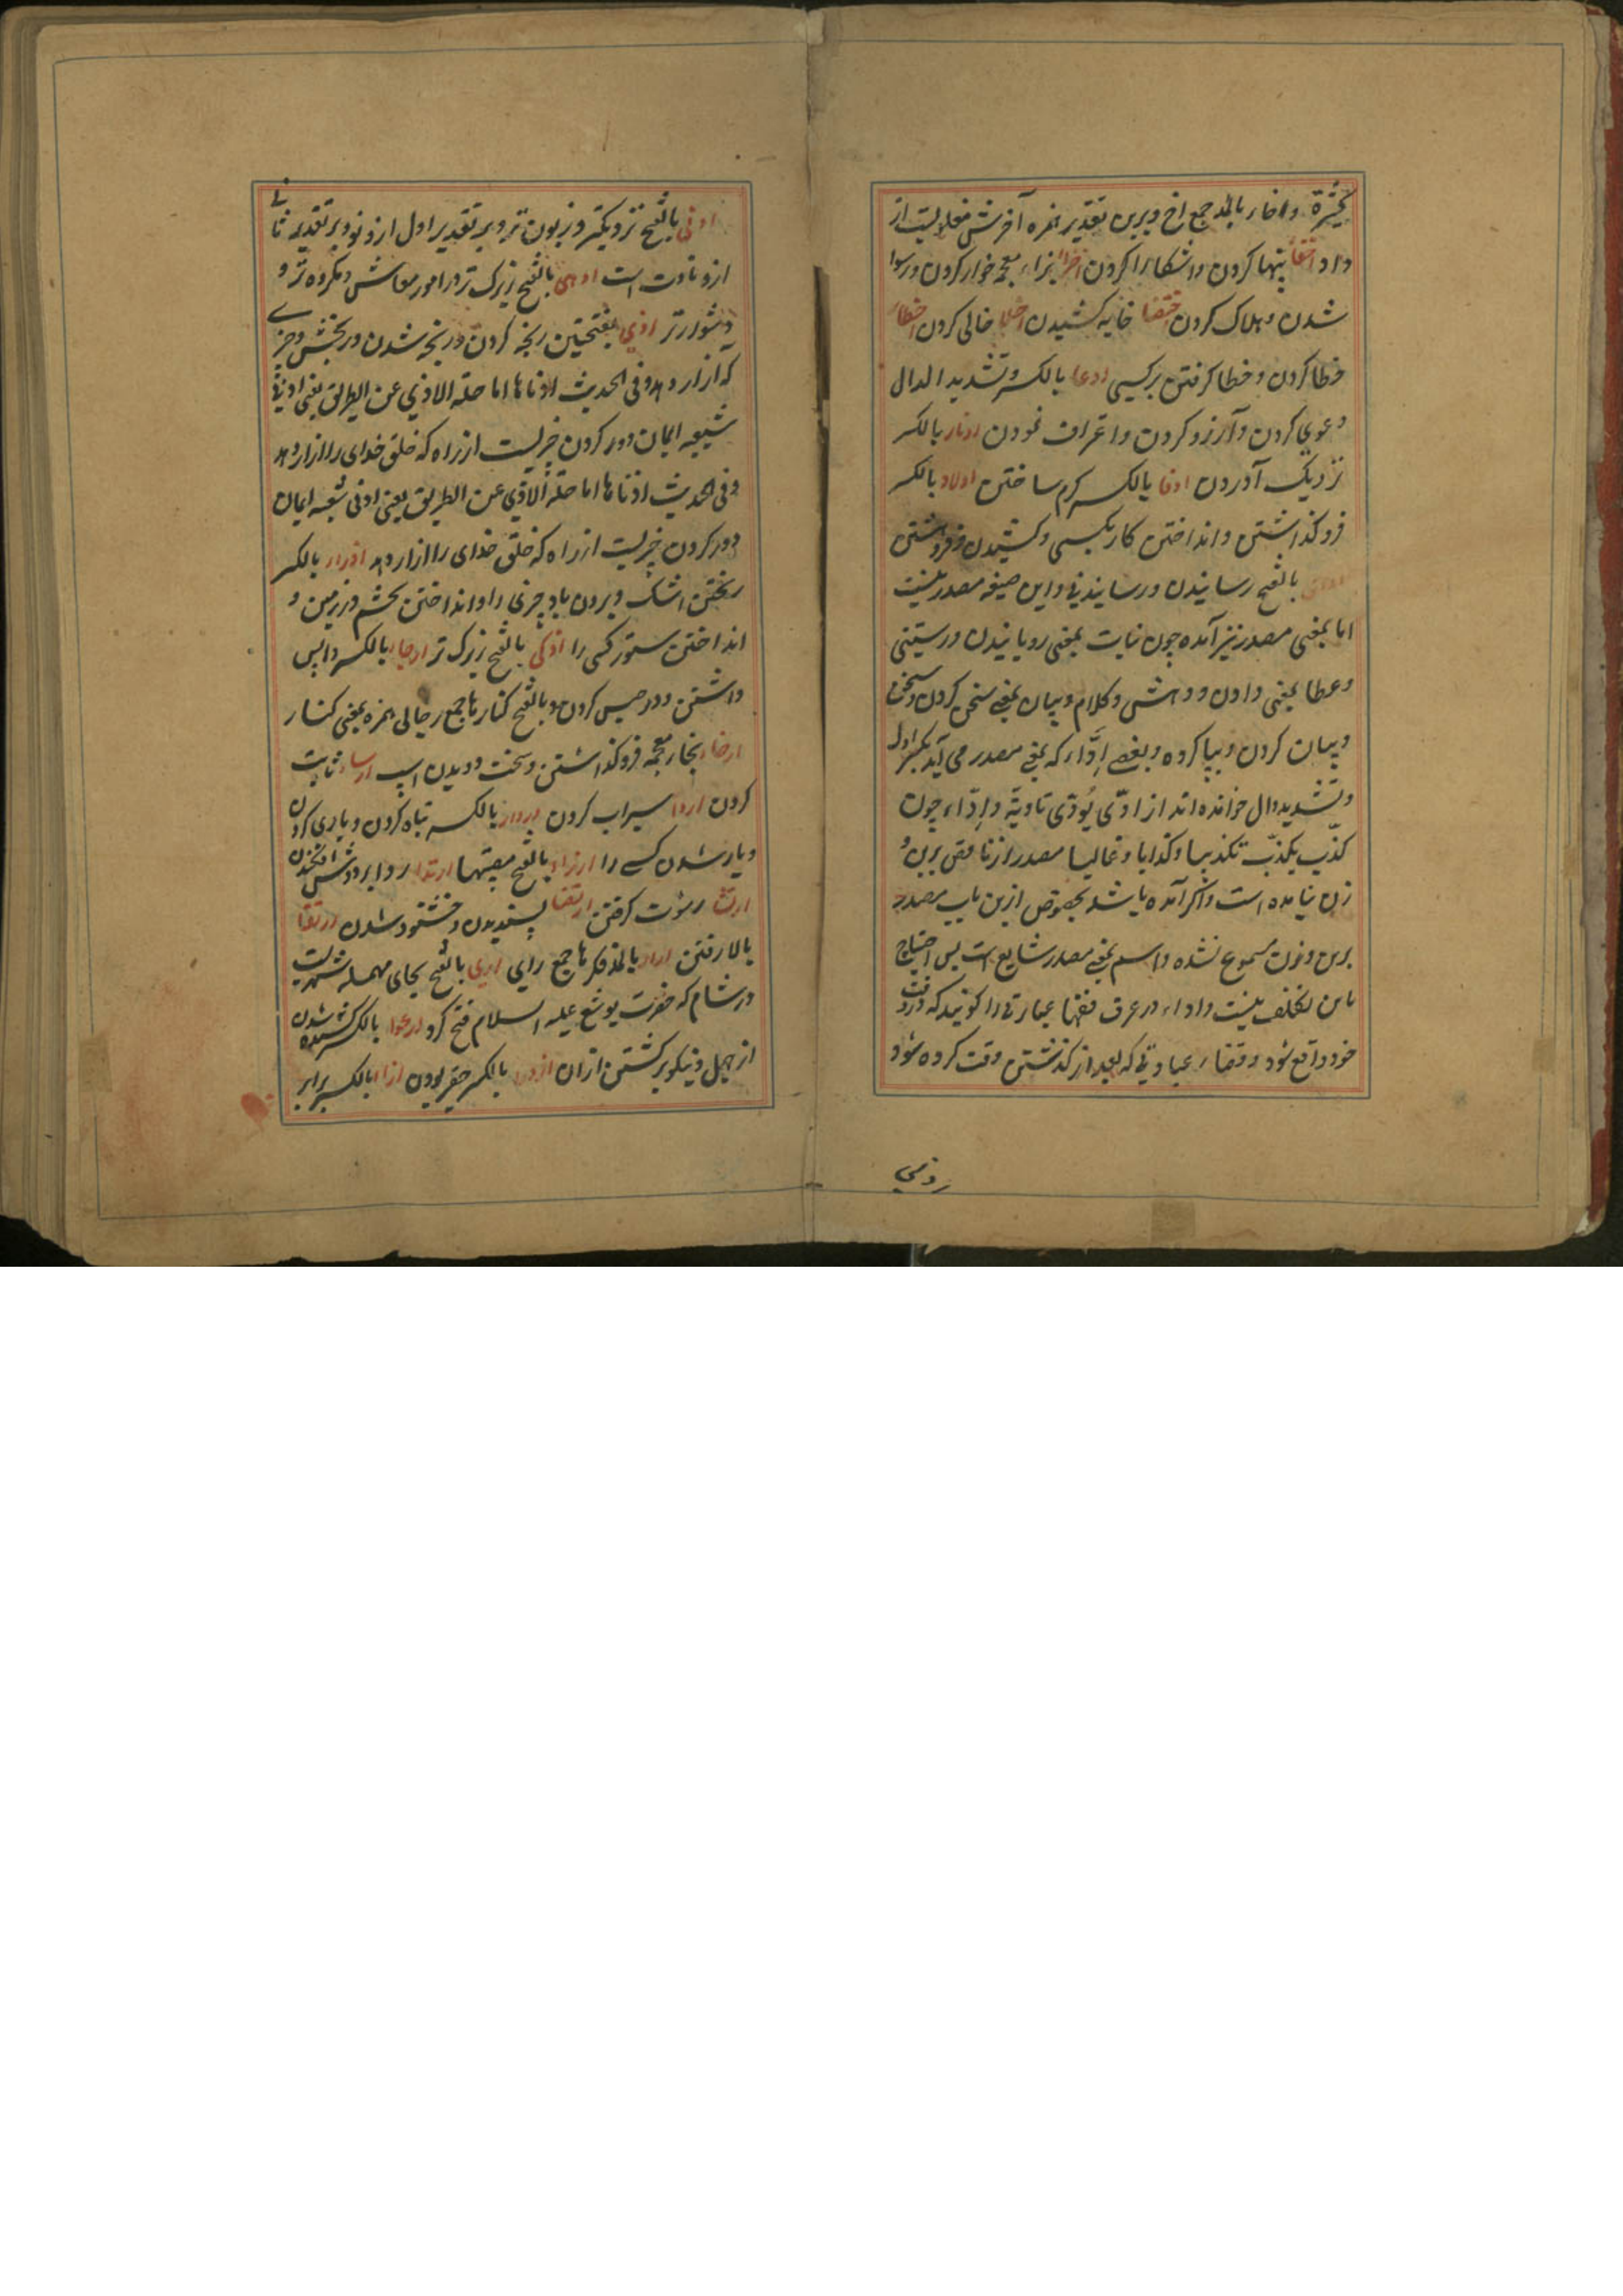 کثیرة واخاء بالمد جمع اخ وبرین تقدیر همزه آخرش مقلوبست از
واو اخفا پنهان کردن واشکارا کردن اخزا بزاء معجمه خوار کردن ورسوا
شدن وهلاک کردن اختفا خایه کشیدن اخلا خالی کردن اخطا
خطا کردن وخطا گرفتن برکسی ادعا بالکسر وتشدید الدال
دعوی کردن وآرزو کردن واعتراف نمودن ادناء بالکسر
نزدیک آوردن ادفا بالکسر گرم ساختن ادلاء بالکسر
فرو گذاشتن وانداختن کار بکسی وکشیدن وفروهشتن
بالفتح رسانیدن ورسانیدنی واین صیغه مصدر نیست
اما بمعنی مصدر نیز آمده چون نبات بمعنی رویانیدن ورستنی
وعطا بمعنی دادن ودهش وکلام وبیان بمعنی سخن کردن وسخن
وبیان کردن وبیا کرده وبعضی اِدّاء که بمعنی مصدر می آید بکسر اول
وتشدید دال خوانده اند از ادّی یُودّی تادیة واِدّاء چون
کذّب یکذّب تکذیبا وکذابا وغالبا مصدر از ناقص برین و
زن نیامده است واگر آمده باشد بخصوص ازین باب مصدر
برین وزن مسموع نشده واسم بمعنی مصدر شایع است پس احتیاج
باین تکلف نیست واداء در عرف فقها عبارتی را گویند که در وقت
خود واقع شود وقضاء عبادتی که بعد از گذشتن وقت کرده شود
ادنی بالفتح نزدیکتر وزبون تر وبر تقدیر اول از دنو وبر تقدیر ثانی
از دناءت است ادهی بالفتح زیرک تر در امور معاش ومکروه تر و
دشوارتر اذی بفتحتین رنجه کردن ورنجه شدن ورنجش وچیزی
که آزار دهد وفی الحدیث ادناها اماطة الاذی عن الطریق یعنی ادنی
شعبه ایمان دور کردن چیزیست از راه که خلق خدای را آزار دهد
وفی الحدیث ادناها اماطة الاذی عن الطریق یعنی ادنی شعبه ایمان
دور کردن چیزیست از راه که خلق خدای را آزار دهد اذراء بالکسر
ریختن اشک وبردن باد چیزی را وانداختن تخم در زمین و
انداختن ستور کسی را اذکی بالفتح زیرک تر ارجاء بالکسر واپس
داشتن ودر حبس کردن وبالفتح کنارها جمع رجا بی همزه بمعنی کنار
ارخاء بخاء معجمه فرو گذاشتن وسخت دویدن اسپ ارساء ثابت
کردن اروا سیراب کردن ارداء بالکسر تباه کردن ویاری کردن
ویار شدن کسی را ارزاء بالفتح مصیبتها ارتدا ردا بر دوش افکندن
ارتشا رشوت گرفتن ارتضا پسندیدن وخشنود شدن ارتقا
بالا رفتن اراء بالمد فکرها جمع رای اریحا بالفتح بحای مهمله شهریست
در شام که حضرت یوشع علیه السلام فتح کرد ارعوا بالکسر شدن
از جهل ونیکو برگشتن ازان ازدرا بالکسر حقیر بودن ازا بالکسر برابر